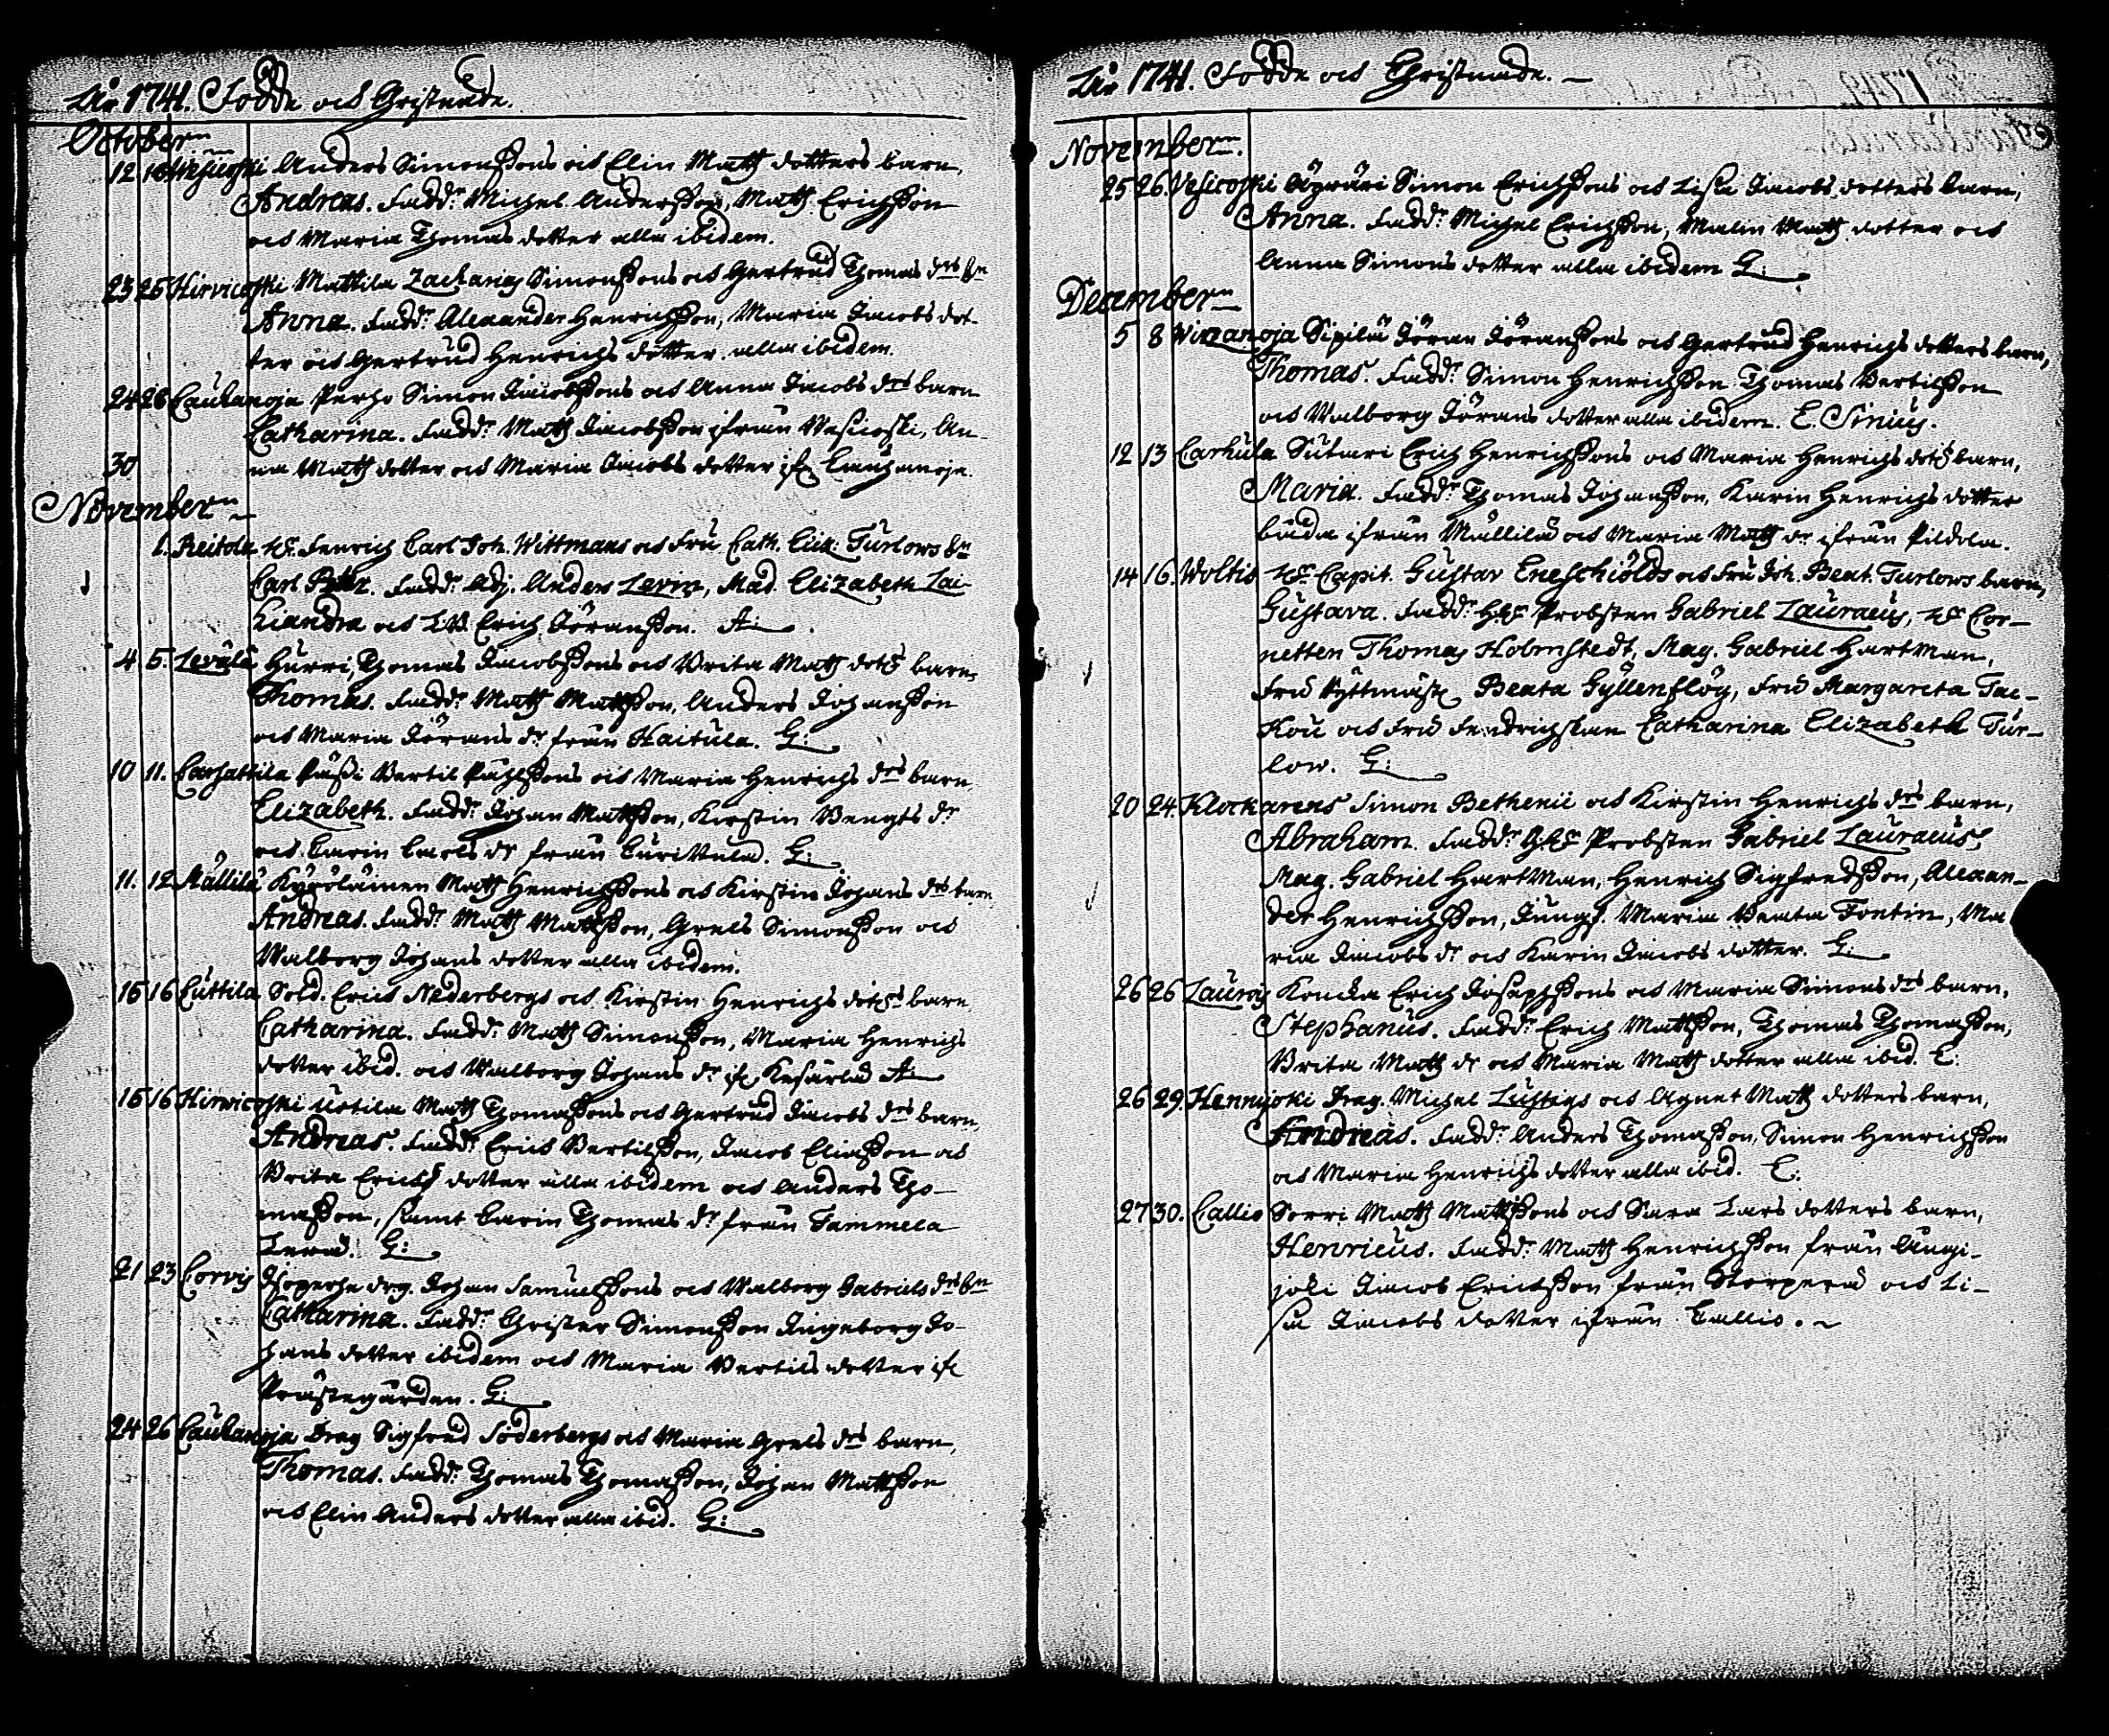 Åhr 1741. Födde och Christnade.
October
12 18 Vesicoski Anders Simonssons och Elin Matts dotters barn,
Andreas. Fadd. Michel Andersson, Matts Erichsson
och Maria Thomas dotter alla ibidem.
23 25 Hirvicoski Mattila Zacharias Simonssons och Gertrud Thomas drs bn
Anna. Fadd. Alexander Henrichsson, Maria Jacobs dot-
ter och Gertrud Henrichs dotter alla ibidem.
24 26 Cauhanoja Perho Simon Jacobssons och Anna Jacobs drs barn
Catharina. Fadd. Matts Jacobsson ifrån Vesicoski, An-
30 na Matts dotter och Maria Jacobs dotter ifr. Cauhanoja.
November
1. Reitola Hr Fenrich Carl Joh. Wittmans och Fru Cath. Elis. Turlows bn
Carl Petter. Fadd. Adj. Anders Levin, Mad. Elizabeth Lai-
kiandra och Erich Jöransson. A:
4 5. Levälä Hurri, Thomas Jacobssons och Brita Matts dotrs barn,
Thomas. Fadd. Matts Mattsson, Anders Johansson
och Maria Jörans dr från Haitula. G:
10 11. Carhattila Påssi Bertil Påhlssons och Maria Henrichs drs barn,
Elizabeth. Fadd. Johan Mattsson, Kirstin Bengts dr
och Carin Carls dr från Curittula. G:
11. 12 Mällilä Kyröläinen Matts Henrichssons och Kirstin Johans drs barn,
Andreas. Fadd. Matts Mattsson, Grels Simonsson och
Walborg Johans dotter alla ibidem.
15 16 Cuttila Sold. Erics Nederbergs och Kirstin Henrichs dotrs barn
Catharina. Fadd. Matts Simonsson, Maria Henrichs
dotter ibid. och Walborg Johans dr ifr. Kesärlä A:
15 16 Hirvicoski Uotila Matts Thomassons och Gertrud Jacobs drs barn,
Andreas. Fadd. Erics Bertilsson, Jacob Eliasson och
Brita Erichs dotter alla ibidem och Anders Tho-
masson, samt Carin Thomas dr från Tammela
G:
21 23 Corvis drg. Johan Samuelssons och Walborg Gabriels drs bn
Catharina. Fadd. Christer Simonsson Ingeborg Jo-
hans dotter ibidem och Maria Bertils dotter ifr.
Prästegården. G:
24 26 Cauhanoja Drag Sigfred Söderbergs och Maria Grels drs barn,
Thomas. Fadd. Thomas Thomasson, Johan Mattsson
och Elin Anders dotter alla ibid. G:
Åhr 1741. Födde och Christnade.
November.
25 26. Vesicoski Äyräri Simon Erichssons och Lisa Jacobs dotters barn,
Anna. Fadd. Michel Erichsson, Malin Matts dotter och
Anna Simons dotter alla ibidem G:
December
5 8 Wirzanoja Sipilä Jöran Jöranssons och Gertrud Henrichs dotters barn,
Thomas. Fadd. Simon Henrichsson Thomas Bertilsson
och Walborg Jörans dotter alla ibidem. C. Sinius.
12 13 Carhula Sutari Erich Henrichssons och Maria Henrichs dotrs barn,
Maria. Fadd. Thomas Johansson, Karin Henrichs dotter
båda ifrån Mällilä och Maria Matts dr ifrån Pildola.
14 16. Woltis Hr Capit. Gustav Eneschiölds och Fru Joh. Beat. Turlows barn,
Gustava. Fadd. Hr Probsten Gabriel Lauraeus, Hr Cor-
netten Thomas Holmstedt, Mag. Gabriel Hartman,
Fru Ryttmäst. Beata Gyllenflög, Fru Margareta Tac-
kou och Fru Fendrichskan Catharina Elizabeth Tur-
low. G:
20 24. Klockarens Simon Bethenii och Kirstin Henrichs drs barn,
Abraham. Fadd. Hr Probsten Gabriel Lauraeus,
Mag. Gabriel Hartman, Henrich Sigfredsson, Alexan-
der Henrichsson, Jungf. Maria Beata Fontin, Ma
ria Jacobs dr och Karin Jacobs dotter. G:
26 26 Laurois Koncka Erich Josephssons och Maria Simons drs barn,
Stephanus. Fadd. Erich Mattsson, Thomas Thomasson,
Brita Matts dr och Maria Matts dotter alla ibid. C:
26 29. Hennijoki Drag. Michel Lustigs och Agnet Matts dotters barn,
Andreas. Fadd. Anders Thomasson, Simon Henrichsson
och Maria Henrichs dotter alla ibid. C:
27 30. Callio Sorri Matts Mattssons och Sara Lars dotters barn,
Henricus. Fadd. Matts Henrichsson från Ängi-
joki Jacob Erichsson från Storperä och Li-
sa Jacobs dotter ifrån Callio.